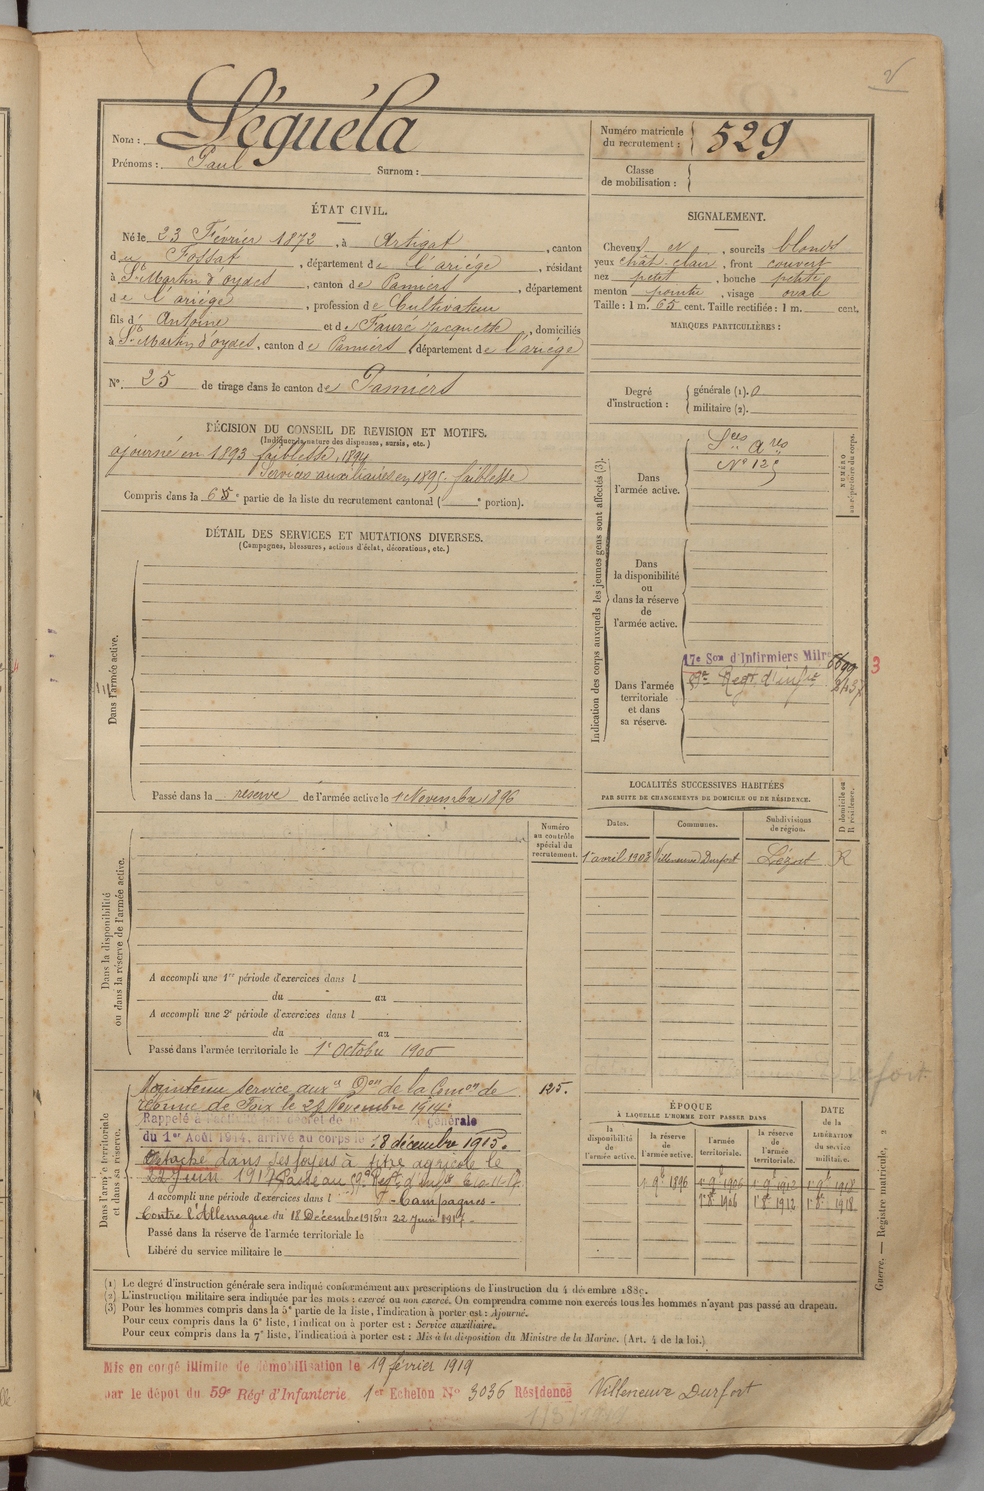 Nom : Séguéla
Prénoms : Paul Surnom :
Numéro matricule du recrutement : 529
Classe de mobilisation :
ÉTAT CIVIL.
Né le 23 Février 1872, à Artigat, canton
du Fossat, département de l'ariége, résidant
à St Martin d'oydes, canton de Pamiers, département
de l'ariége, profession de Cultivateur
fils d' Antoine et de Faure Jacquette, domiciliés
à St Martin d'oydes, canton de Pamiers, département de l'ariége
N° 25 de tirage dans le canton de Pamiers
SIGNALEMENT.
Cheveux et, sourcils blonds
yeux chât. clair, front couvert
nez petit, bouche petite
menton pointu, visage ovale
Taille : 1 m. 65 cent. Taille rectifiée : 1 m. cent.
MARQUES PARTICULIÈRES :
Degré d'instruction : générale (1). 0
militaire (2).
DÉCISION DU CONSEIL DE REVISION ET MOTIFS.
(Indiquer la nature des dispenses, sursis, etc.)
ajourné en 1893 faiblesse, 1894
Services auxiliaires en 1895. faiblesse
Compris dans la 6e partie de la liste du recrutement cantonal ( e portion).
DÉTAIL DES SERVICES ET MUTATIONS DIVERSES.
(Campagnes, blessures, actions d'éclat, décorations, etc.)
Dans l'armée active.
Passé dans la réserve de l'armée active le 1 Novembre 1896
Indication des corps auxquels les jeunes gens sont affectés (3).
NUMÉRO au répertoire du corps.
Dans l'armée active.
Sces ares
N° 125
Dans la disponibilité ou dans la réserve de l'armée active.
Dans l'armée territoriale et dans sa réserve.
17e Son d'Infirmiers Milres
Regt d'infie
3
LOCALITÉS SUCCESSIVES HABITÉES
PAR SUITE DE CHANGEMENTS DE DOMICILE OU DE RÉSIDENCE.
D domicile ou R résidence.
Dates. Communes. Subdivisions de région.
1er avril 1903 Villeneuve Durfort Lézat R
Numéro au contrôle spécial du recrutement.
Dans la disponibilité ou dans la réserve de l'armée active.
A accompli une 1re période d'exercices dans l
du au
A accompli une 2e période d'exercices dans l
du au
Passé dans l'armée territoriale le 1er Octobre 1906
Dans l'armée territoriale et dans sa réserve.
Maintenu service auxre Don de la Comon de 125.
réforme de Foix le 29 Novembre 1914.
Rappelé à générale
du 1er Août 1914, arrivé au corps le 18 décembre 1915.
Détaché dans ses foyers à titre agricole le
22 Juin 1917
A accompli une période d'exercices dans l - Campagnes -
Contre l'Allemagne du 18 Décembre 1915 au 22 Juin 1917 -
Passé dans la réserve de l'armée territoriale le
Libéré du service militaire le
ÉPOQUE
À LAQUELLE L'HOMME DOIT PASSER DANS
DATE DE LA LIBÉRATION DU SERVICE MILITAIRE.
la disponibilité de l'armée active. la réserve de l'armée active. l'armée territoriale. la réserve de l'armée territoriale.
1 9e 1896 1 9e 1906 1 9e 1912 1 9e 1918
1 8e 1906 1 8e 1912 1 8e 1918
Guerre. — Registre matricule, 2
(1) Le degré d'instruction générale sera indiqué conformément aux prescriptions de l'instruction du 4 décembre 1889.
(2) L'instruction militaire sera indiquée par les mots : exercé ou non exercé. On comprendra comme non exercés tous les hommes n'ayant pas passé au drapeau.
(3) Pour les hommes compris dans la 5e partie de la liste, l'indication à porter est : Ajourné.
Pour ceux compris dans la 6e liste, l'indication à porter est : Service auxiliaire.
Pour ceux compris dans la 7e liste, l'indication à porter est : Mis à la disposition du Ministre de la Marine. (Art. 4 de la loi.)
Mis en congé illimité de démobilisation le 19 février 1919
par le dépôt du 59e Régt d'Infanterie 1er Echelon N° 3036 Résidence Villeneuve Durfort